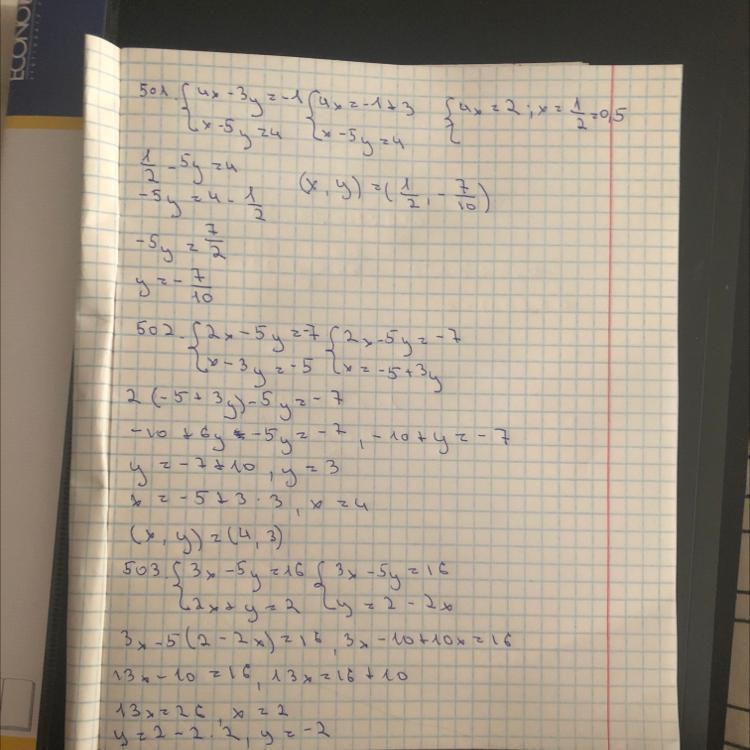 ECONO
501. { 4x - 3y = -1 { 4x = -1 + 3 { 4x = 2 ; x = 1/2 = 0,5
{ x - 5y = 4 { x - 5y = 4 {
1/2 - 5y = 4
-5y = 4 - 1/2 (x, y) = (1/2, -7/10)
-5y = 7/2
y = -7/10
502. { 2x - 5y = -7 { 2x - 5y = -7
{ x - 3y = -5 { x = -5 + 3y
2(-5 + 3y) - 5y = -7
-10 + 6y - 5y = -7, -10 + y = -7
y = -7 + 10, y = 3
x = -5 + 3 · 3, x = 4
(x, y) = (4, 3)
503. { 3x - 5y = 16 { 3x - 5y = 16
{ 2x + y = 2 { y = 2 - 2x
3x - 5(2 - 2x) = 16, 3x - 10 + 10x = 16
13x - 10 = 16, 13x = 16 + 10
13x = 26, x = 2
y = 2 - 2 · 2, y = -2